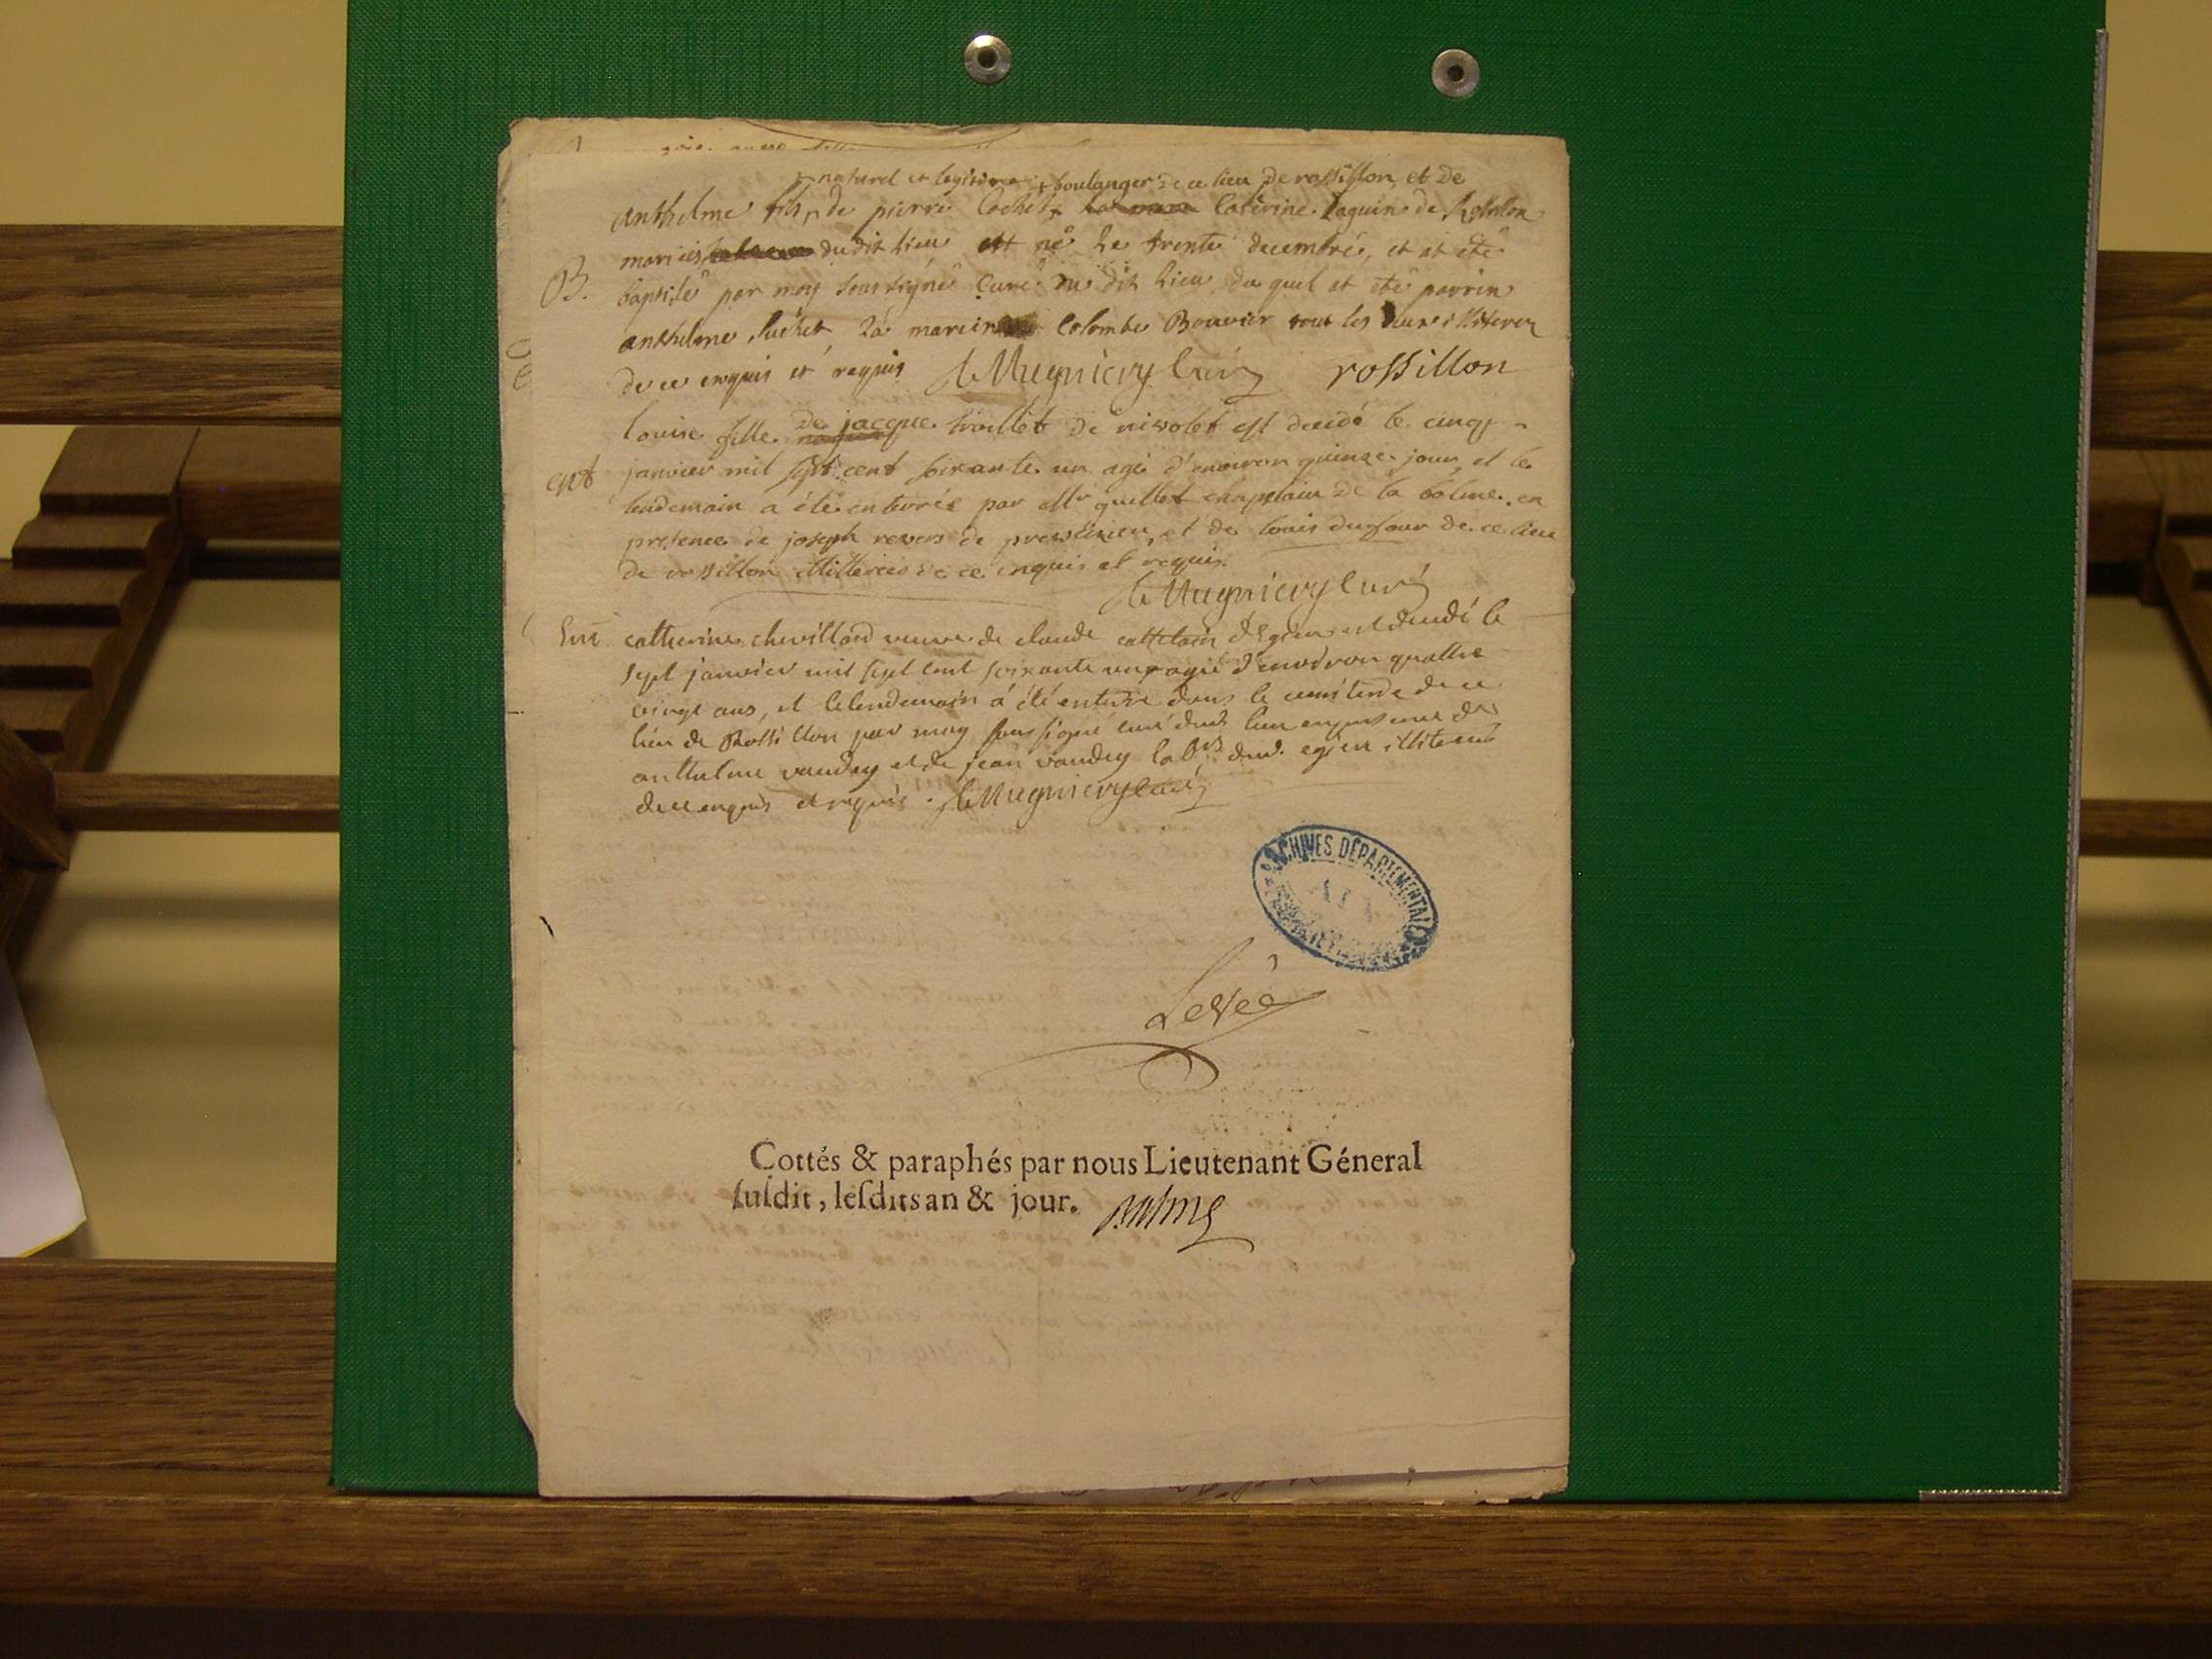 naturel et legitime + boulanger de ce lieu de rossillon, et de
anthelme fils de pierre Cochet caterine Jaquin de Rossillon
mariés du dit lieu est né le trente decembre, et at eté
B. baptisé par moy soussigné Curé du dit lieu, du quel at eté parrin
anthelme Cuchet, la mareine Colombe Bouvier tout les deux illiterez
de ce enquis et requis deMugniery Curé rossillon
Louise fille de jacque troullet de nivolet est decidé le cinq
ent janvier mil sept cent soixante un agé d'environ quinze jour, et le
lendemain a été enterrée par Mr guillet chapelain de la balme en
presence de joseph revers de , et de louis dufour de ce lieu
de rossillon illiterés de ce enquis et requis.
deMugniery Curé
Ent catherine chevillard veuve de claude cattelain d'Egieu est decedé le
sept janvier mil sept cent soixante un agé d'environ quattre
vingt ans, et le lendemain á été enterré dans le cemitiere de ce
lieu de Rossillon par moy soussigné curé dud. lieu en presence de
anthelme vaudey et de jean vaudey labrs dud. egieu illiterés
de ce enquis et requis. deMugniery Curé
ARCHIVES DÉPARTEMENTALES
AIN
Levée
Cottés & paraphés par nous Lieutenant Géneral
susdit, lesdits an & jour. Balme